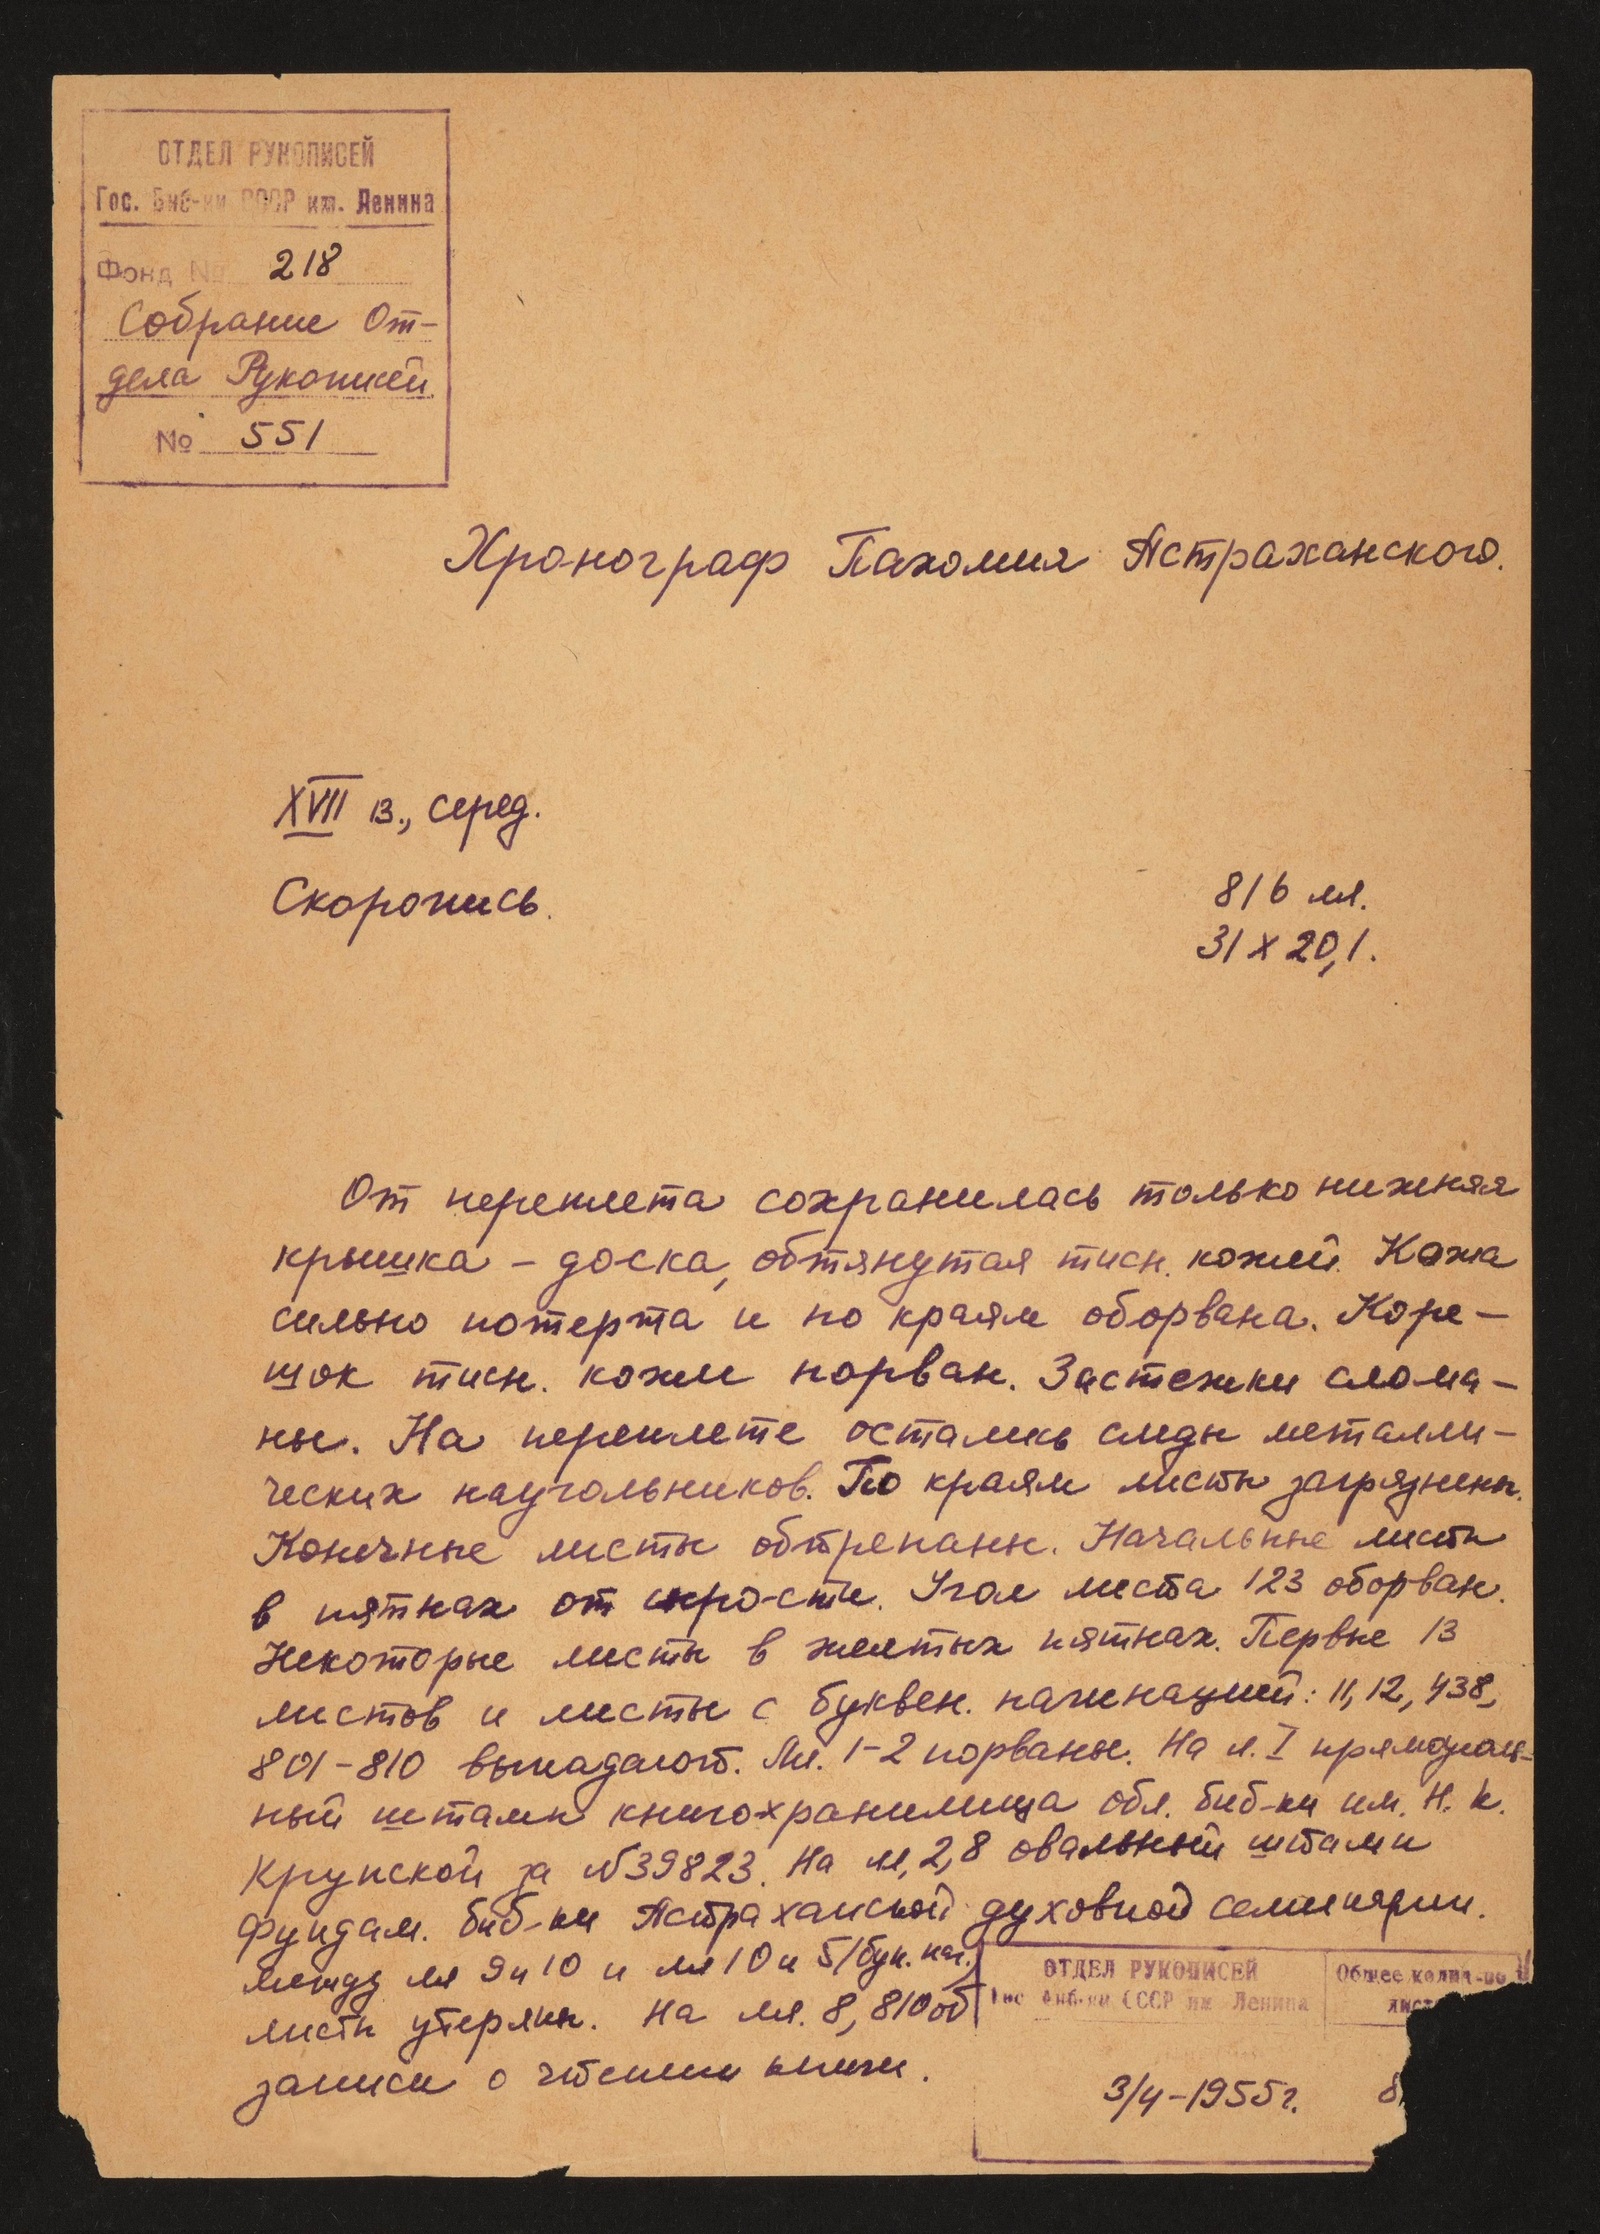 ОТДЕЛ РУКОПИСЕЙ
Гос. Биб-ки СССР им. Ленина
Фонд № 218
Собрание От-
дела Рукописей
№ 551
Хронограф Пахомия Астраханского.
XVII в., серед.
Скоропись.
816 лл.
31 х 20,1.
От переплета сохранилась только нижняя
крышка – доска, обтянутая тисн. кожей. Кожа
сильно потерта и по краям оборвана. Коре-
шок тисн. кожи порван. Застежки слома-
ны. На переплете остались следы металли-
ческих наугольников. По краям листы загрязнены.
Конечные листы обтрепаны. Начальные листы
в пятнах от сырости. Угол листа 123 оборван.
Некоторые листы в желтых пятнах. Первые 13
листов и листы с буквен. пагинацией: 11, 12, 438,
801-810 выпадают. Лл. 1-2 порваны. На л. I прямоуголь-
ный штамп книгохранилища обл. биб-ки им. Н. К.
Крупской за №39823. На лл, 2, 8 овальный штамп
фундам. биб-ки Астраханской духовной семинарии.
между лл 9 и 10 и лл 10 и 5/бук. паг./
листы утеряны. На лл. 8, 810 об
записи о чтении книги.
ОТДЕЛ РУКОПИСЕЙ
Гос Биб-ки СССР им Ленина
Общее колич-во
лист
3/4-1955г.
8